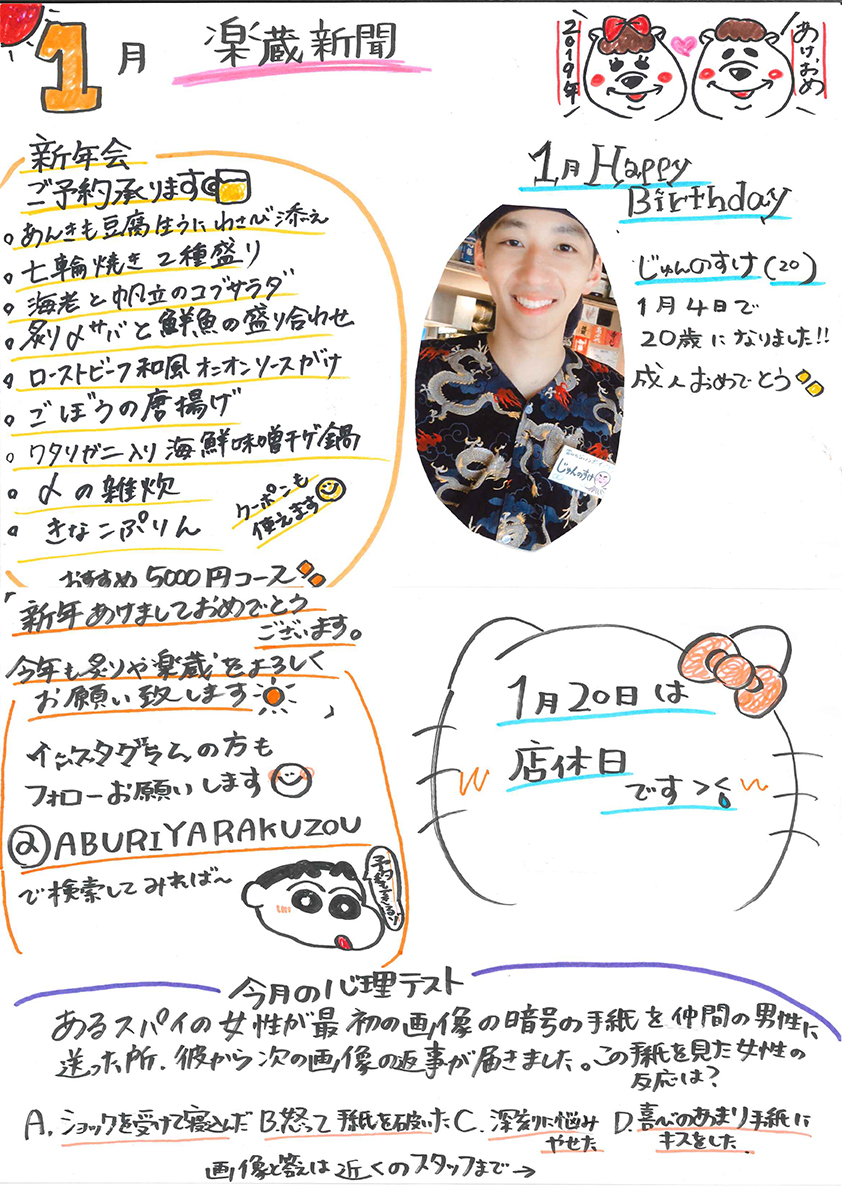 1月 楽蔵新聞
2019年
あけおめ
新年会
ご予約承ります
。あんきも豆腐生うにわさび添え
。七輪焼き2種盛り
。海老と帆立のコブサラダ
。炙り〆サバと鮮魚の盛り合わせ
。ローストビーフ和風オニオンソースがけ
。ごぼうの唐揚げ
。ワタリガニ入り海鮮味噌チゲ鍋
。〆の雑炊
。きなこぷりん
クーポンも
使えます
おすすめ5000円コース
1月Happy
Birthday
じゅんのすけ(20)
1月4日で
20歳になりました!!
成人おめでとう
じゅんのすけ
「新年あけましておめでとう
ございます。
今年も炙りや楽蔵をよろしく
お願い致します」
インスタグラムの方も
フォローお願いします
@ABURIYARAKUZOU
で検索してみれば〜
1月20日は
店休日
です><
今月の心理テスト
あるスパイの女性が最初の画像の暗号の手紙を仲間の男性に
送った所、彼から次の画像の返事が届きました。この手紙を見た女性の
反応は?
A. ショックを受けて寝込んだ B. 怒って手紙を破いた C. 深刻に悩み
やせた D. 喜びのあまり手紙に
キスをした
画像と答えは近くのスタッフまで→